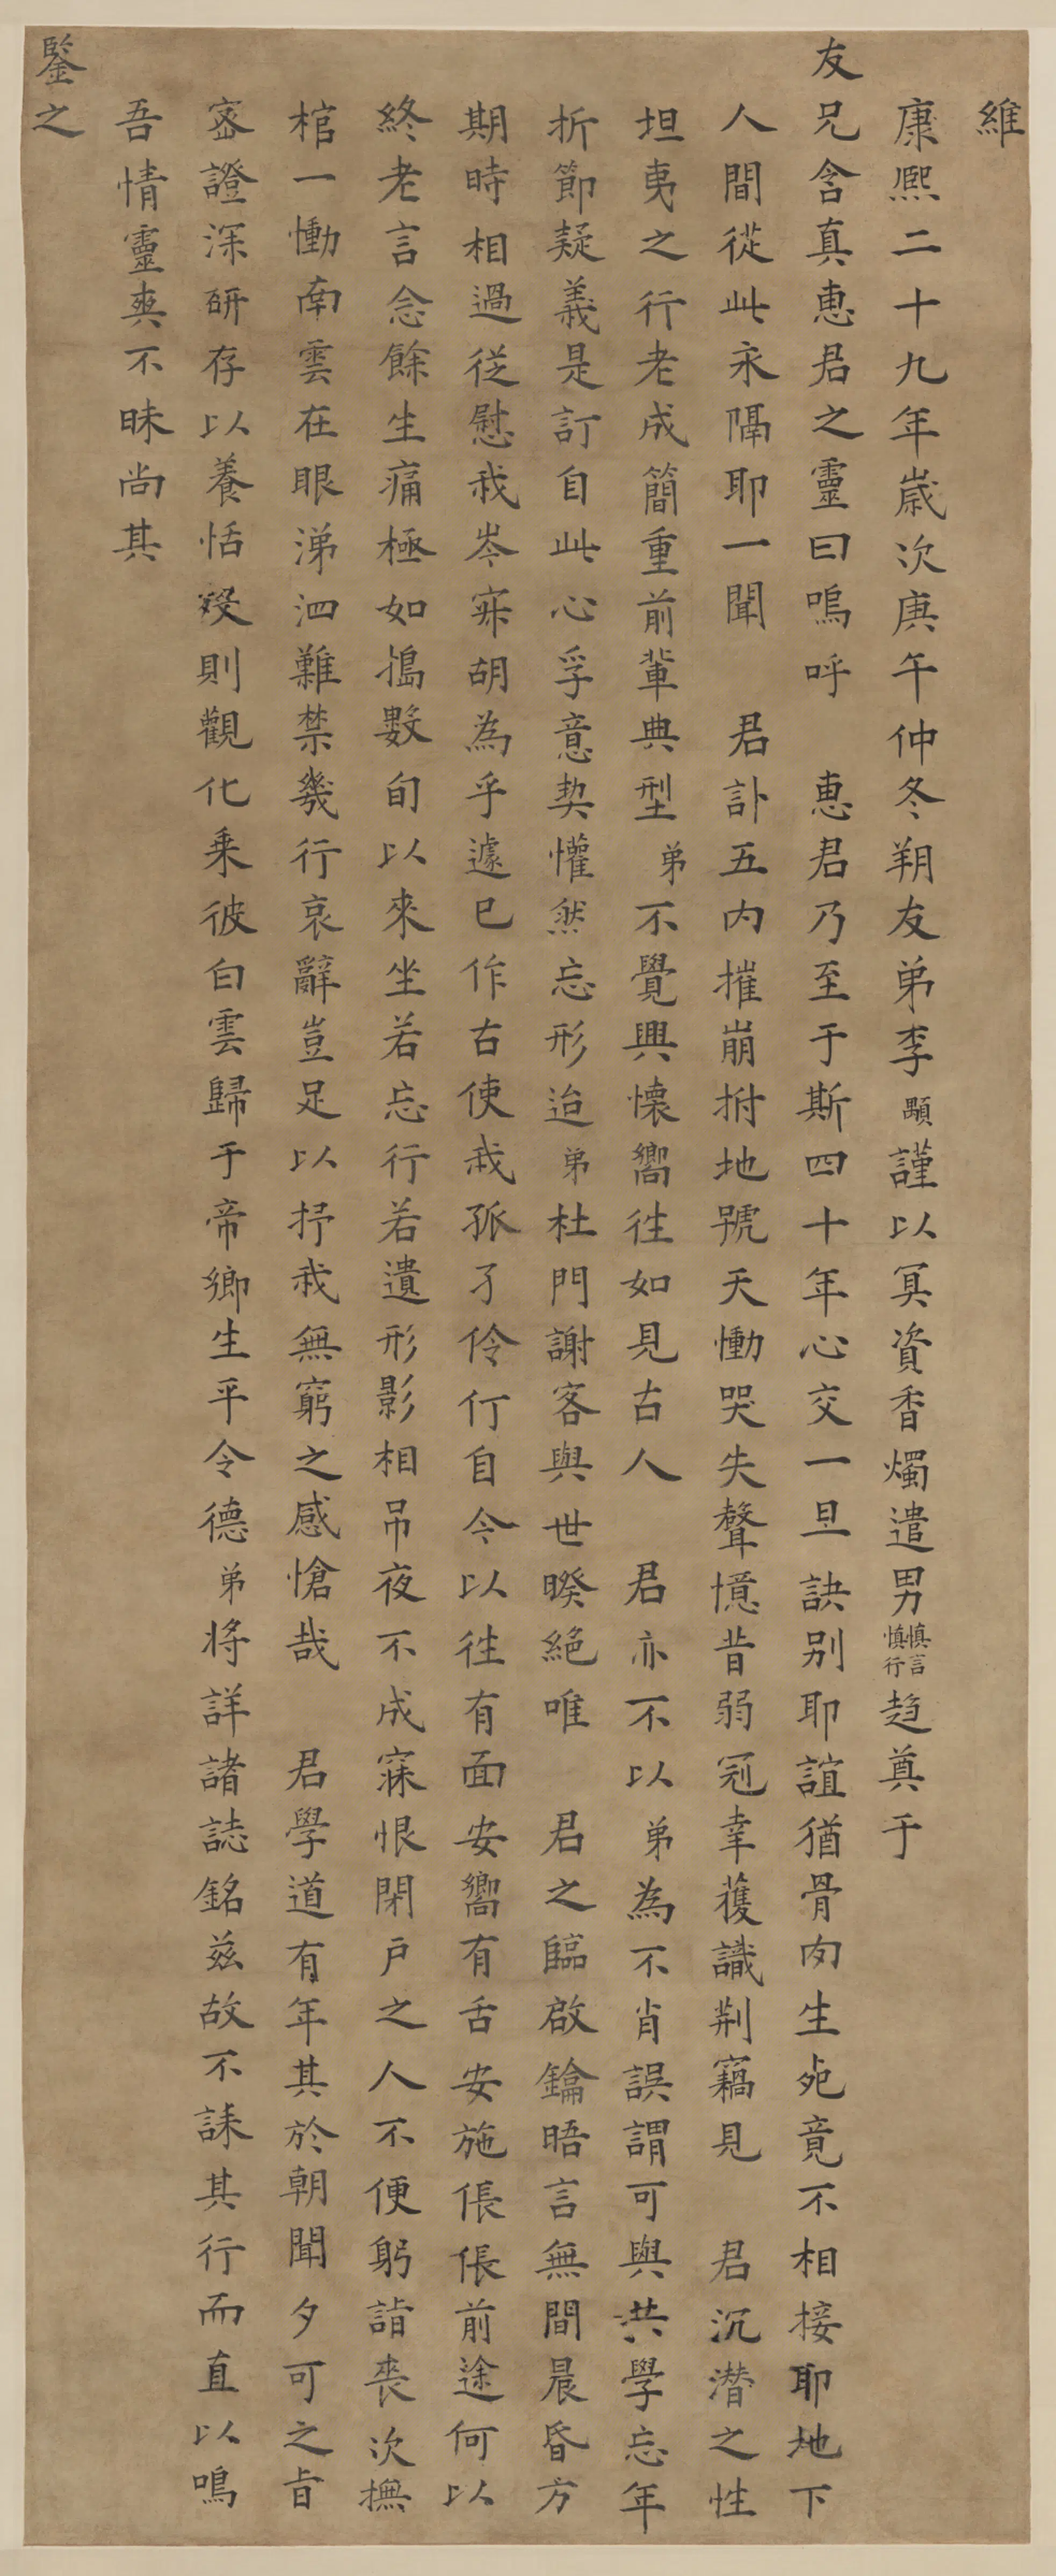 維
康熙二十九年歲次庚午仲冬朔友弟李顒謹以冥資香燭遣男慎言慎行趋奠于
友兄含真惠君之靈曰嗚呼　惠君乃至于斯四十年心交一旦訣别耶誼猶骨肉生死竟不相接耶地下
人間從此永隔耶一聞　君訃五内摧崩拊地號天慟哭失聲憶昔弱冠幸獲識荆竊見　君沉潛之性
坦夷之行老成簡重前輩典型　弟不覺興懷嚮往如見古人　君亦不以弟為不肖誤謂可與共學忘年
折節疑義是訂自此心孚意契懽然忘形迨弟杜門謝客與世暌絕唯　君之臨啟鑰晤言無間晨昏方
期時相過從慰我岑寂胡為乎遽已作古使我孤孑伶仃自今以往有面安嚮有舌安施倀倀前途何以
終老言念餘生痛極如搗數旬以來坐若忘行若遺形影相吊夜不成寐恨閉户之人不便躬詣喪次撫
棺一慟南雲在眼涕泗難禁幾行哀辭豈足以抒我無窮之感愴哉　君學道有年其於朝聞夕可之旨
密證深研存以養恬殁則觀化乘彼白雲歸于帝鄉生平令德弟將詳諸誌銘茲故不誄其行而直以鳴
吾情靈爽不昧尚其
鑒之